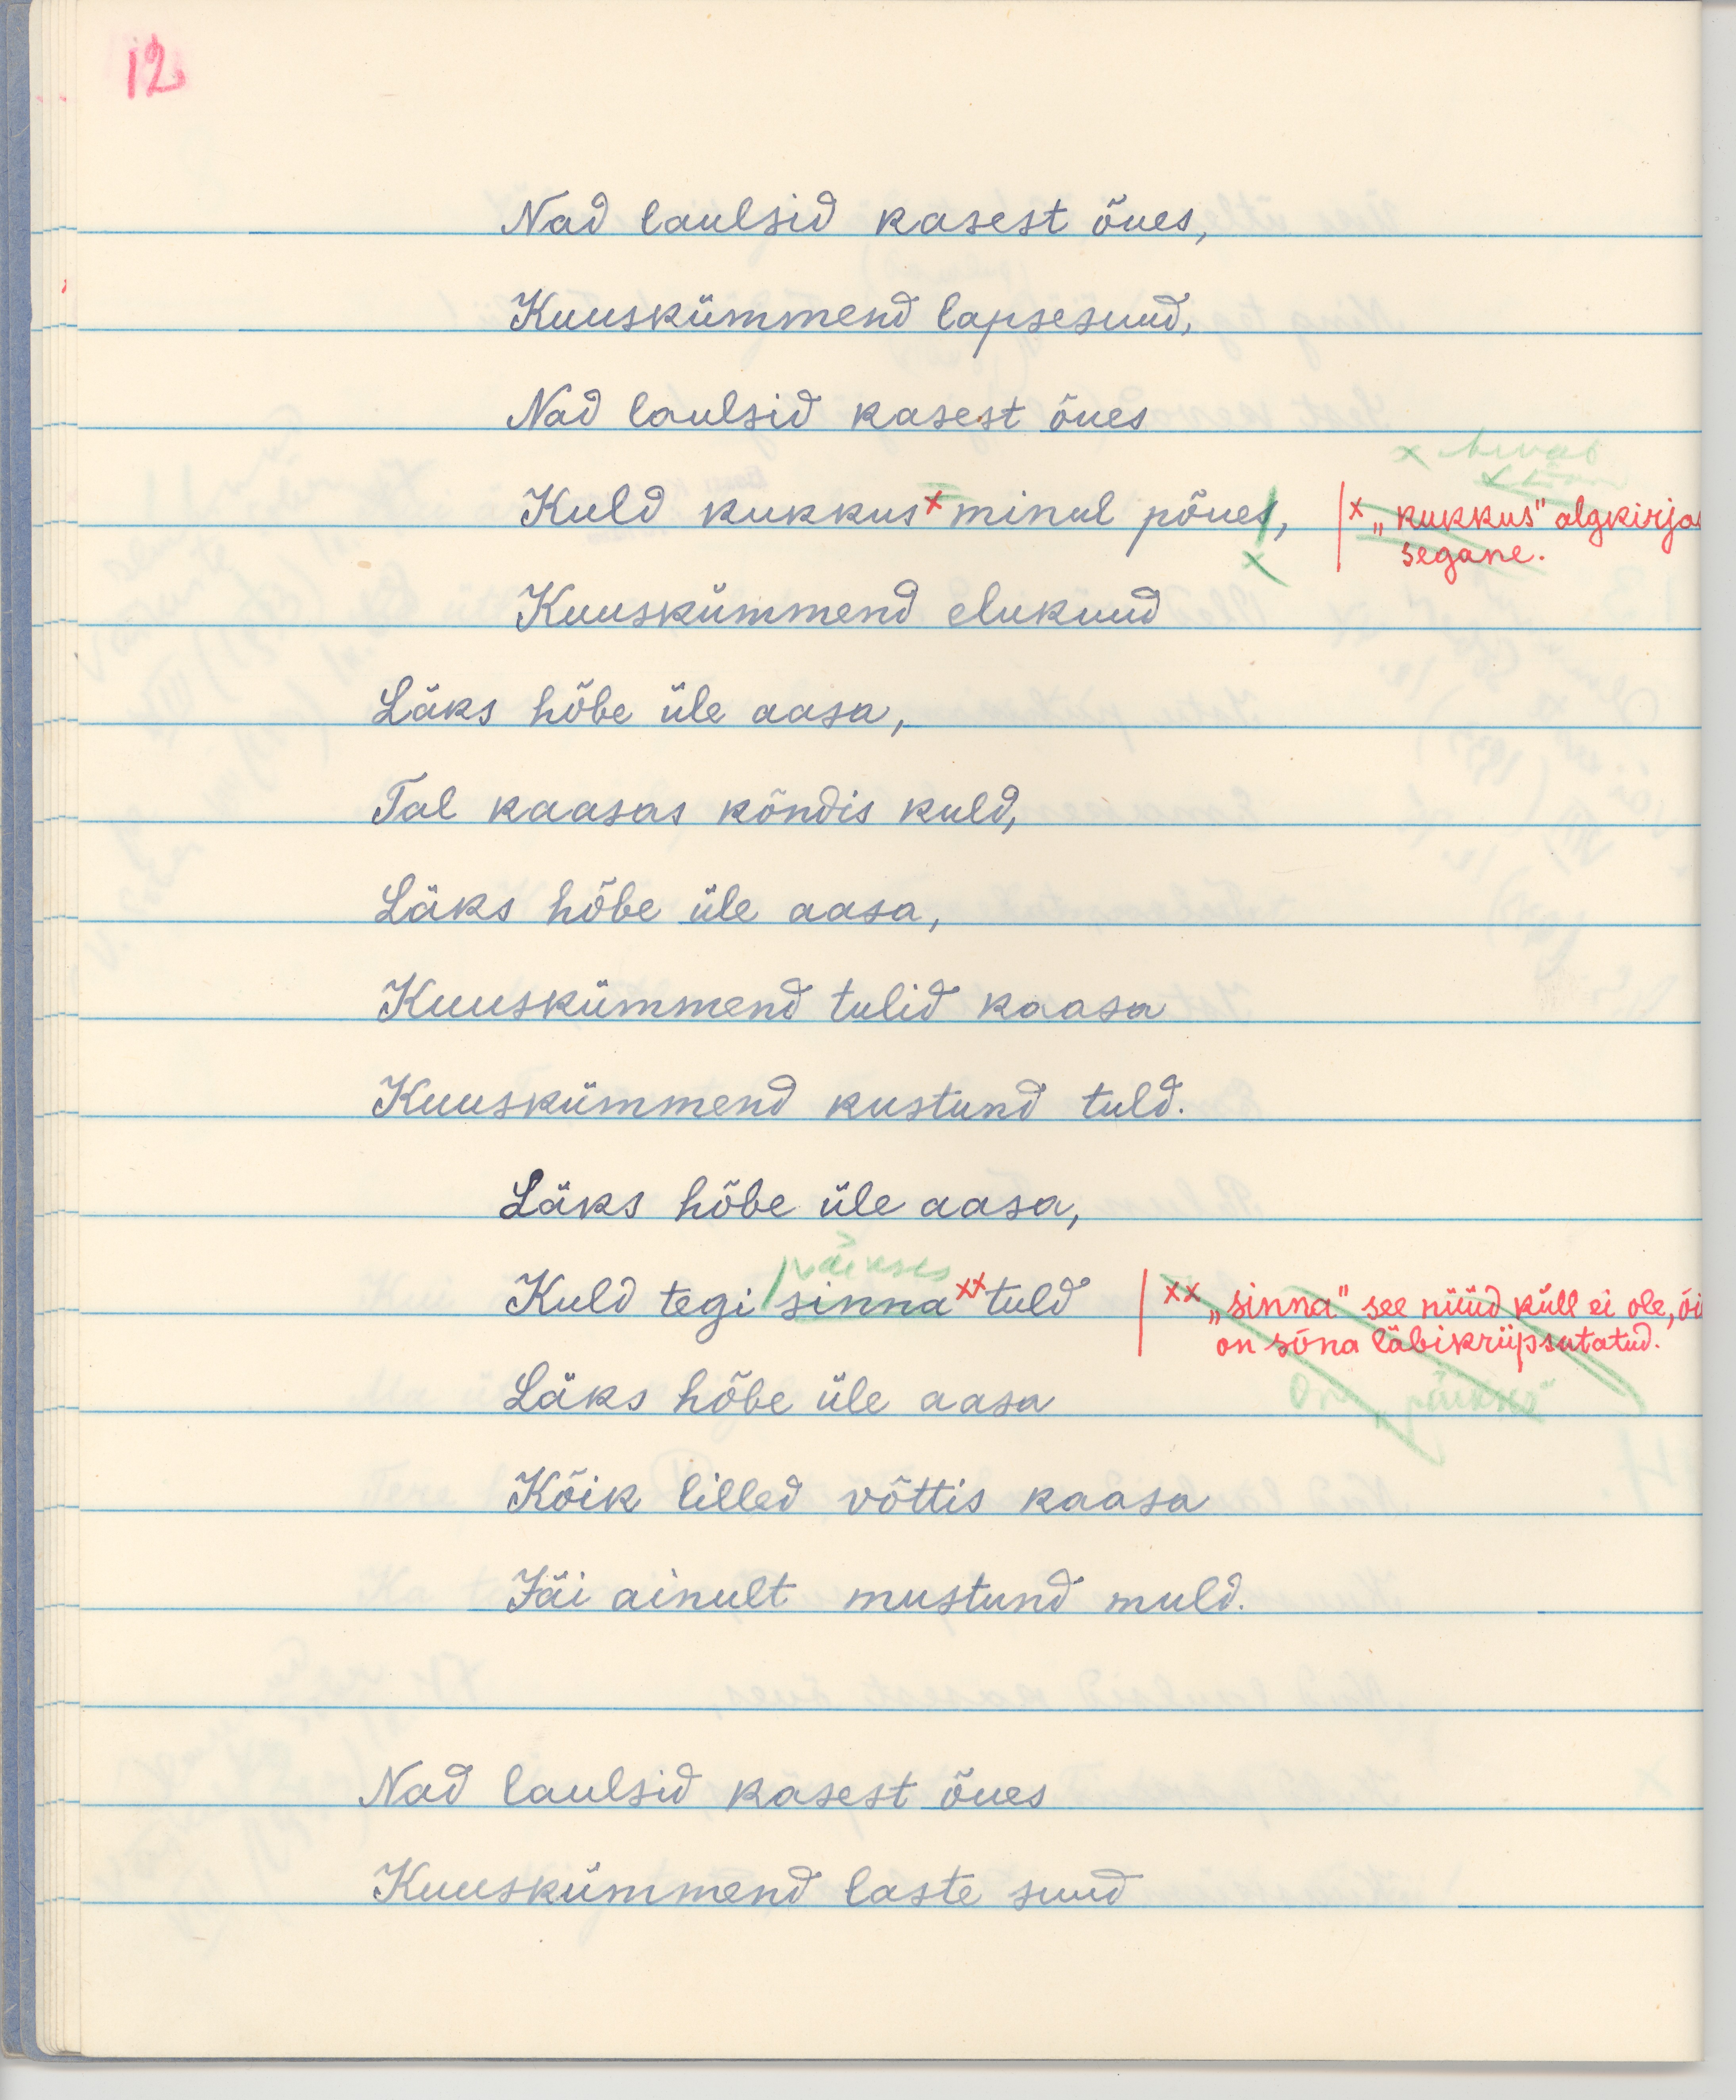 12
Nad laulsid kasest õues,
Kuuskümmend lapsesuud,
Nad laulsid kasest õues
x
Kuld kukkus x minul põues,
x „kukkus" algkirjas
segane.
x
Kuuskümmend elukuud
Läks hõbe üle aasa,
Tal kaasas kõndis kuld,
Läks hõbe üle aasa,
Kuuskümmend tulid kaasa
Kuuskümmend kustund tuld.
Läks hõbe üle aasa,
päikses
Kuld tegi sinna xx tuld
xx „sinna" see nüüd küll ei ole, õi
on sõna läbikriipsutatud.
Läks hõbe üle aasa
on „päikse"
Kõik lilled võttis kaasa
Jäi ainult mustund muld.
Nad laulsid kasest õues
Kuuskümmend laste suud